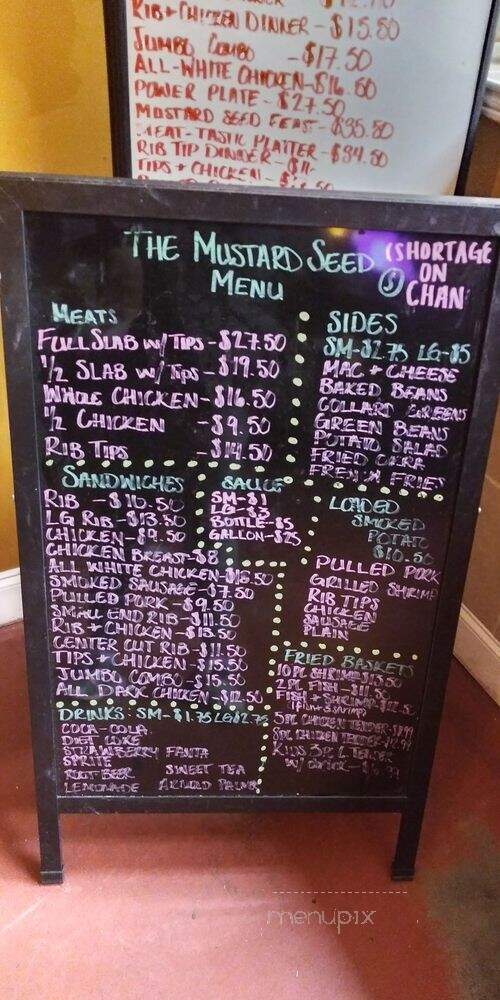 RIB + CHICKEN DINNER - $15.50
JUMBO COMBO - $17.50
ALL-WHITE CHICKEN - $16.50
POWER PLATE - $27.50
MUSTARD SEED FEAST - $35.50
MEAT-TASTIC PLATTER - $34.50
RIB TIP DINNER - $1
TIPS + CHICKEN -
THE MUSTARD SEED
MENU
(SHORTAGE
ON
CHAN
MEATS
FULL SLAB W/ TIPS - $27.50
1/2 SLAB W/ TIPS - $19.50
WHOLE CHICKEN - $16.50
1/2 CHICKEN - $9.50
RIB TIPS - $14.50
SIDES
SM-$2.75 LG-$5
MAC + CHEESE
BAKED BEANS
COLLARD GREENS
GREEN BEANS
POTATO SALAD
FRIED OKRA
FRENCH FRIES
SANDWICHES
RIB - $10.50
LG RIB - $13.50
CHICKEN - $9.50
CHICKEN BREAST - $8
ALL WHITE CHICKEN - $13.50
SMOKED SAUSAGE - $7.50
PULLED PORK - $9.50
SMALL END RIB - $11.50
RIB + CHICKEN - $15.50
CENTER CUT RIB - $11.50
TIPS + CHICKEN - $15.50
JUMBO COMBO - $15.50
ALL DARK CHICKEN - $12.50
SAUCE
SM-$1
LG-$3
BOTTLE-$5
GALLON-$25
LOADED
SMOKED
POTATO
$10.50
PULLED PORK
GRILLED SHRIMP
RIB TIPS
CHICKEN
SAUSAGE
PLAIN
FRIED BASKETS
10 PC SHRIMP $13.50
2 PC FISH - $11.50
FISH + SHRIMP - $12.50
5 PC CHICKEN TENDER
8 PC CHICKEN TENDER - $12.99
KIDS 3 PC TENDER
DRINKS: SM-$1.75 LG $2.75
COCA-COLA
DIET COKE
STRAWBERRY FANTA
SPRITE
ROOT BEER SWEET TEA
LEMONADE ARNOLD PALMER
menupix